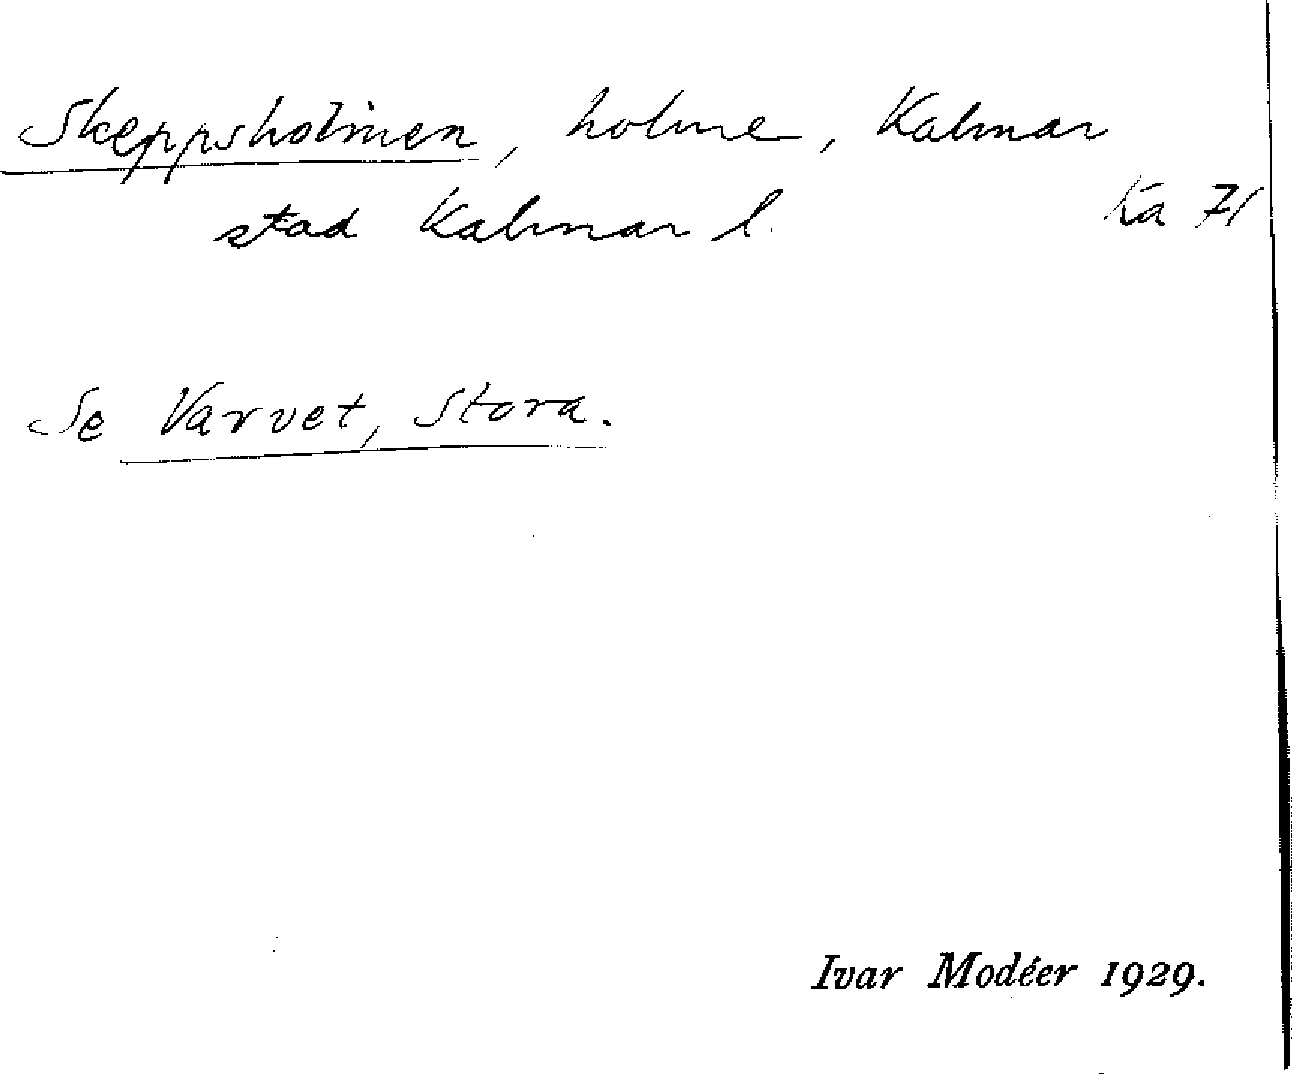 Skeppsholmen, holme, Kalmar
stad Kalmar l. Ka 71
Se Varvet, Stora.
Ivar Modéer 1929.